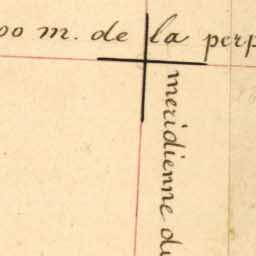 00 m. de la perp
meridienne du